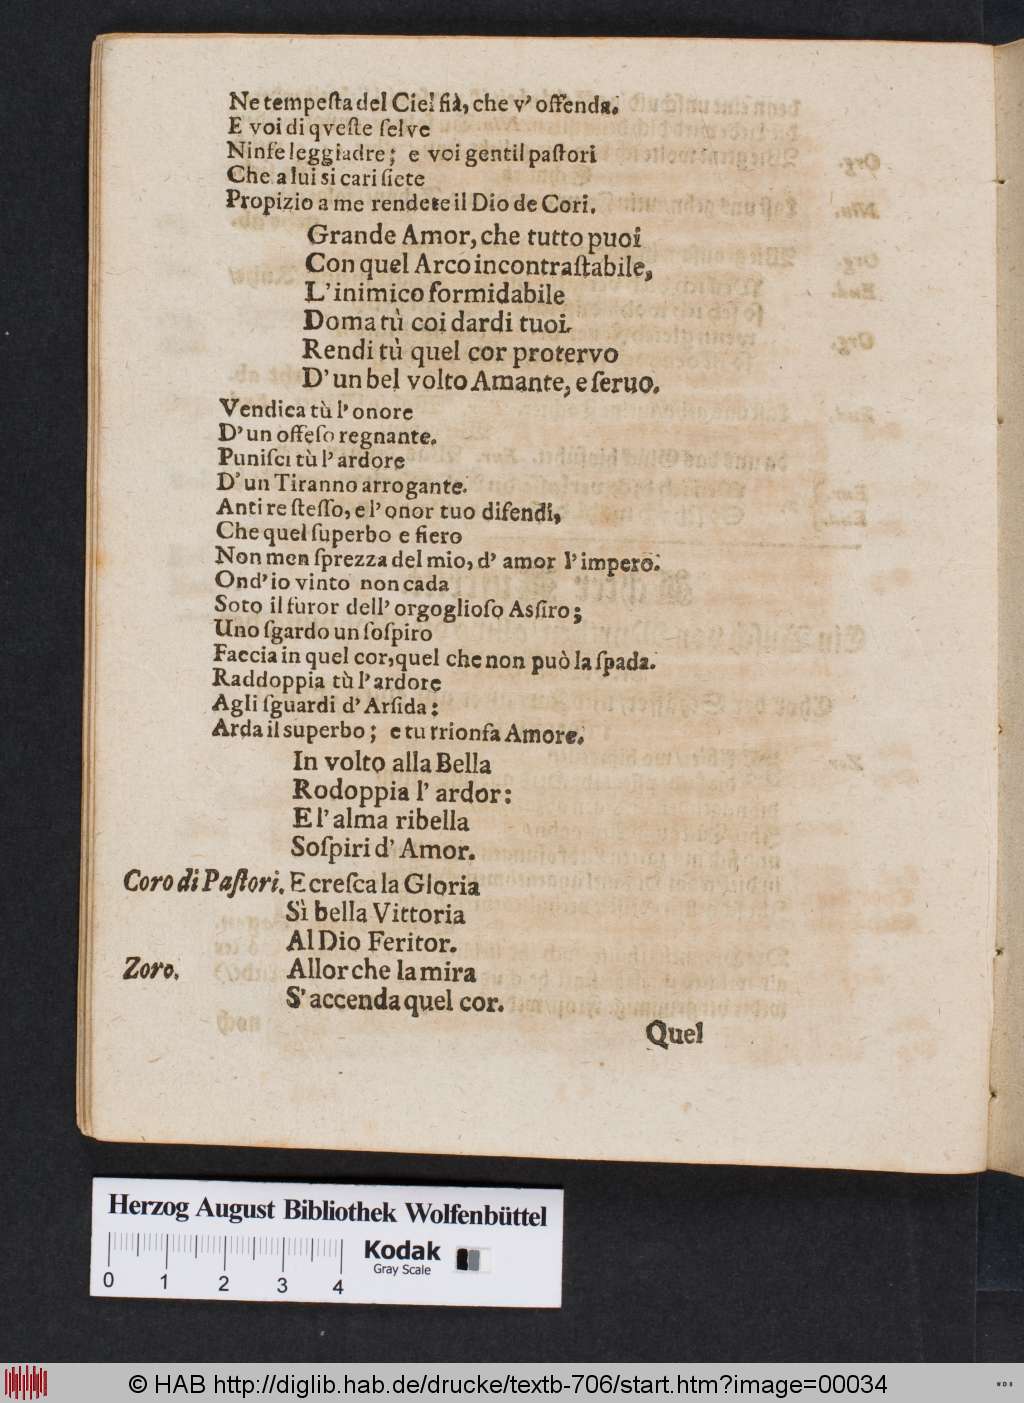 Ne tempeſta del Ciel ſià, che v' offenda.
E voi di qveſte ſelve
Ninfe leggiadre; e voi gentil paſtori
Che a lui si cari ſiete
Propizio a me rendete il Dio de Cori.
Grande Amor, che tutto puoi
Con quel Arco incontraſtabile,
L' inimico formidabile
Doma tù coi dardi tuoi.
Rendi tù quel cor protervo
D' un bel volto Amante, e ſeruo.
Vendica tù l' onore
D' un offeſo regnante.
Puniſci tù l' ardore
D' un Tiranno arrogante.
Anti te ſteſſo, e l' onor tuo difendi,
Che quel ſuperbo e fiero
Non men ſprezza del mio, d' amor l' impero.
Ond' io vinto non cada
Soto il furor dell' orgoglioſo Asſiro;
Uno ſgardo un ſoſpiro
Faccia in quel cor, quel che non può la ſpada.
Raddoppia tù l' ardore
Agli ſguardi d' Arſida:
Arda il superbo; e tu trionfa Amore.
In volto alla Bella
Rodoppia l' ardor:
E l' alma ribella
Soſpiri d' Amor.
Coro di Paſtori. E creſca la Gloria
Sì bella Vittoria
Al Dio Feritor.
Zoro. Allor che la mira
S' accenda quel cor.
Quel
Herzog August Bibliothek Wolfenbüttel
Kodak
Gray Scale
0 1 2 3 4
© HAB http://diglib.hab.de/drucke/textb-706/start.htm?image=00034